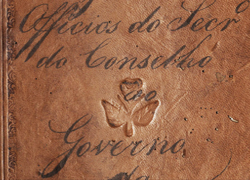 Officios do Secr.
do Conselho
ao
Governo,
da